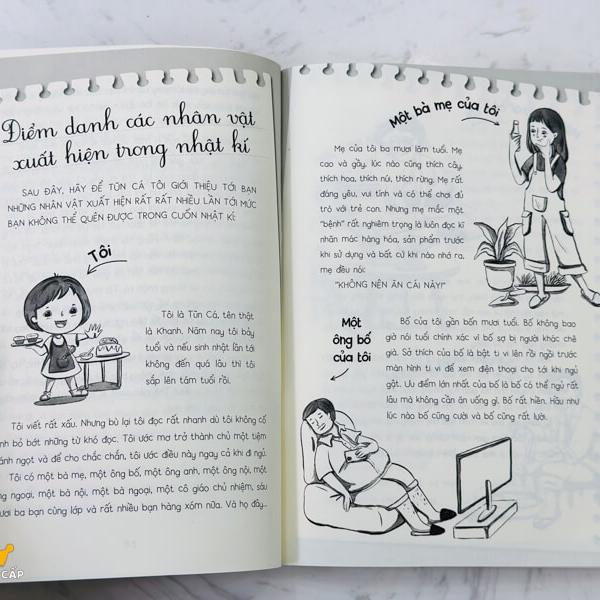 Điểm danh các nhân vật
xuất hiện trong nhật kí
SAU ĐÂY, HÃY ĐỂ TŨN CÁ TÔI GIỚI THIỆU TỚI BẠN
NHỮNG NHÂN VẬT XUẤT HIỆN RẤT RẤT NHIỀU LẦN TỚI MỨC
BẠN KHÔNG THỂ QUÊN ĐƯỢC TRONG CUỐN NHẬT KÍ:
Tôi
Tôi là Tũn Cá, tên thật
là Khanh. Năm nay tôi bảy
tuổi và nếu sinh nhật lần tới
không đến quá lâu thì tôi
sắp lên tám tuổi rồi.
Tôi viết rất xấu. Nhưng bù lại tôi đọc rất nhanh dù tôi không cố
bỏ bớt những từ khó đọc. Tôi ước mơ trở thành chủ một tiệm
ánh ngọt và để cho chắc chắn, tôi ước điều này ngay cả khi đi ngủ.
Tôi có một bà mẹ, một ông bố, một ông anh, một ông nội, một
ng ngoại, một bà nội, một bà ngoại, một cô giáo chủ nhiệm, sáu
ươi ba bạn cùng lớp và rất nhiều bạn hàng xóm nữa. Và họ đây...
CẤP
Một bà mẹ của tôi
Mẹ của tôi ba mươi lăm tuổi. Mẹ
cao và gầy, lúc nào cũng thích cây,
thích hoa, thích núi, thích rừng. Mẹ rất
đáng yêu, vui tính và có thể chơi đủ
trò với trẻ con. Nhưng mẹ mắc một
“bệnh” rất nghiêm trọng là luôn đọc kĩ
nhãn mác hàng hóa, sản phẩm trước
khi sử dụng và bất cứ khi nào nhớ ra,
mẹ đều nói:
“KHÔNG NÊN ĂN CÁI NÀY!”
Một
ông bố
của tôi
Bố của tôi gần bốn mươi tuổi. Bố không bao
giờ nói tuổi chính xác vì bố sợ bị người khác chê
già. Sở thích của bố là bật ti vi lên rồi ngồi trước
màn hình ti vi để xem điện thoại cho tới khi ngủ
gật. Ưu điểm lớn nhất của bố là bố có thể ngủ rất
lâu mà không cần ăn uống gì. Bố rất hiền. Hầu như
lúc nào bố cũng cười và bố cũng rất lười.